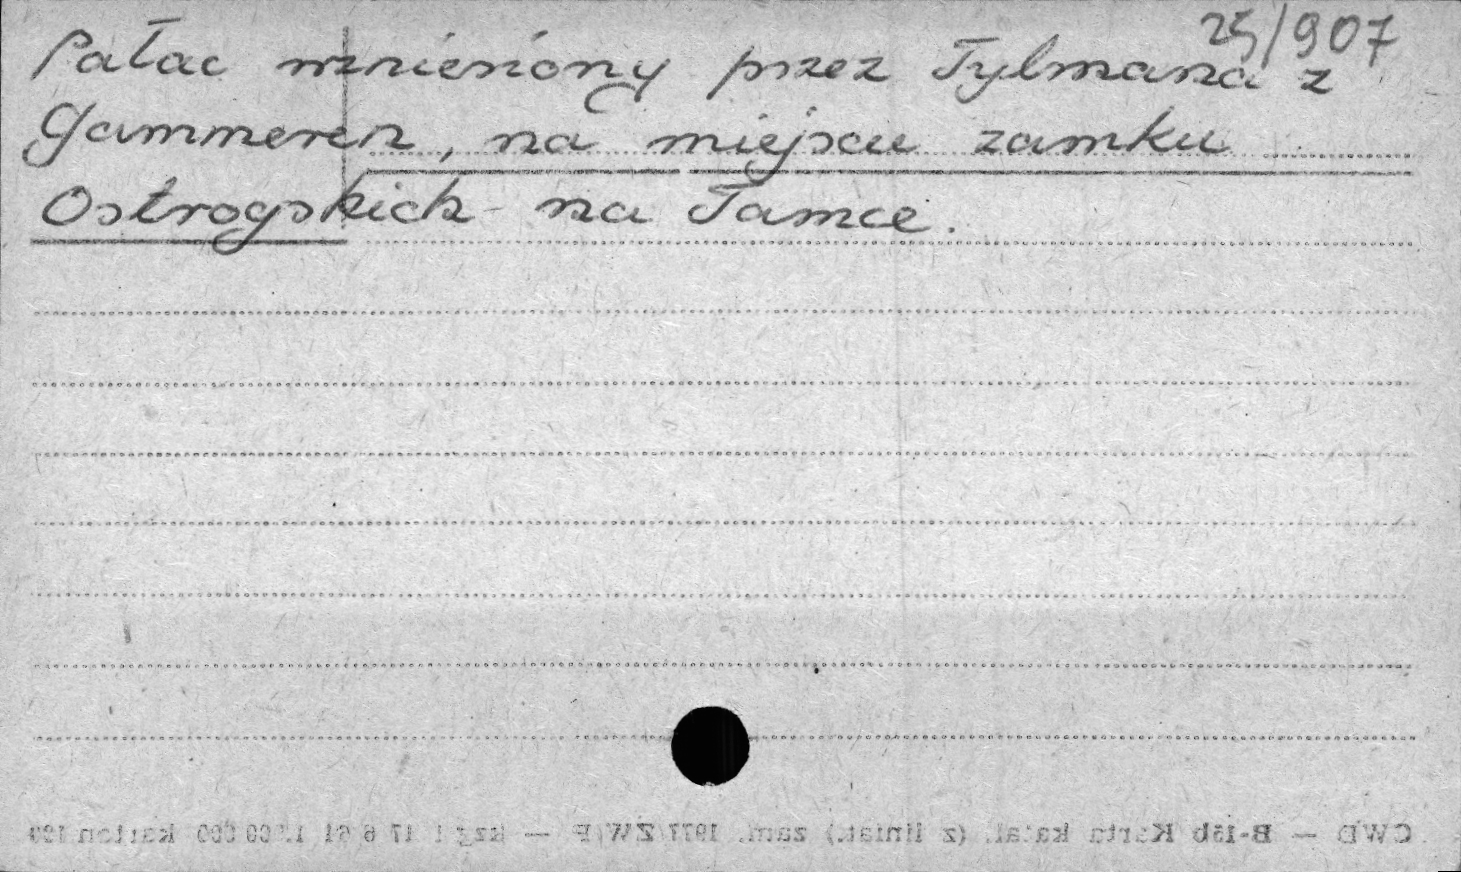 25/907
Pałac wzniesiony przez Tylmana z
Gammeren, na miejscu zamku
Ostrogskich na Tamce.
CWD — B-15b Karta katal. (z liniat.) zam. 1977/ZW/F — kszt